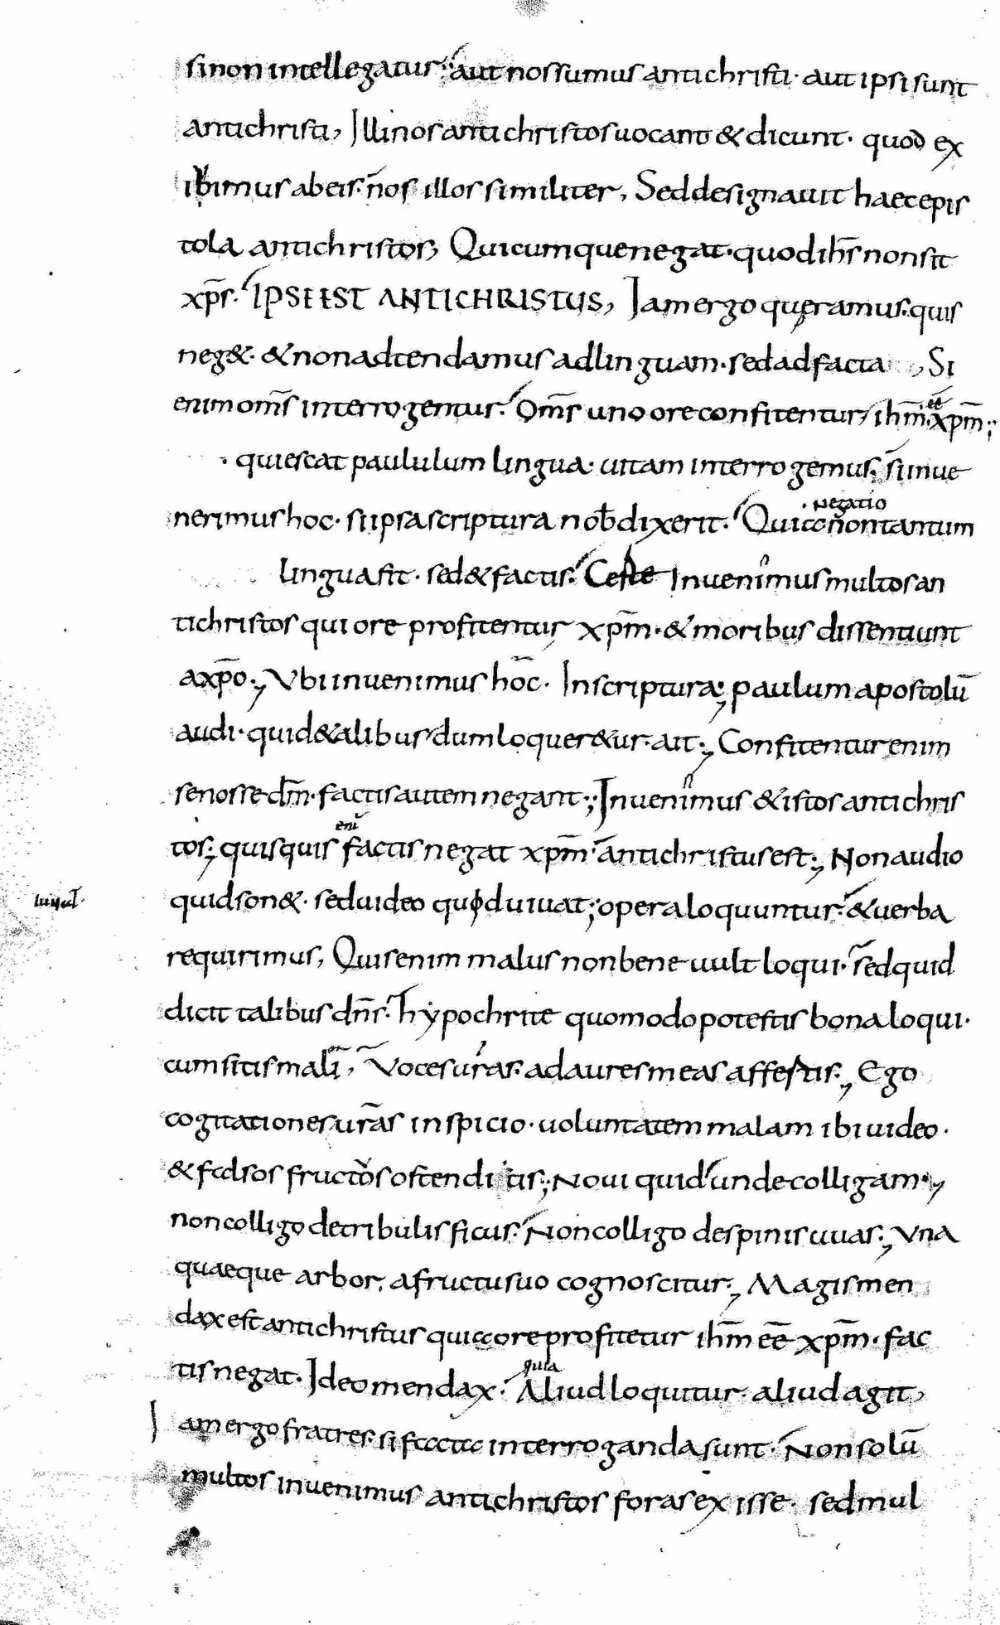 si non intellegatur; aut nos sumus antichristi· aut ipsi sunt
antichristi, Illi nos antichristos uocant & dicunt· quod ex
ibimus ab eis· n̄os illos similiter, Sed designauit haec epis
tola antichristos, Quicumque negat· quod ih̄s non sit
xp̄s· IPSE EST ANTICHRISTUS, Iam ergo queramus· quis
neg&· & non adtendamus ad linguam· sed ad facta, Si
enim om̄s interrogentur· Om̄s uno ore confitentur ih̄m ēē xp̄m;
· quiescat paululum lingua· uitam interrogemus; si inue
nerimus hoc· si ipsa scriptura nob̄ dixerit· Quia negatio non tantum
lingua fit· sed & factis· Certe Inuenimus multos an
tichristos qui ore profitentur xp̄m· & moribus dissentiunt
a xp̄o; Vbi inuenimus hōc· In scriptura; paulum apostolū
audi· quid & alibus dum loquer&ur· ait; Confitentur enim
se nosse dm̄· factis autem negant; Inuenimus & istos antichris
tos; quisquis enī factis negat xp̄m antichristus est; Non audio
quid son&· sed uideo quod uiuat; opera loquuntur· & uerba
requirimus, Quis enim malus non bene uult loqui· sed quid
dicit talibus dn̄s· hypochrite quomodo potestis bona loqui·
cum sitis mali, Voces ur̄as· ad aures meas affertis; Ego
cogitationes ur̄as inspicio· uoluntatem malam ibi uideo·
& falsos fructos ostenditis; Noui quid unde colligam;
non colligo de tribulis ficus· Non colligo de spinis uuas; Vna
quaeque arbor, a fructu suo cognoscitur; Magis men
dax est antichristus qui ore profitetur ih̄m ēē xp̄m· fac
tis negat· Ideo mendax· quia Aliud loquitur· aliud agit,
Iam ergo fratres· si facta interroganda sunt· Non solū
multos inuenimus antichristos foras exisse· sed mul